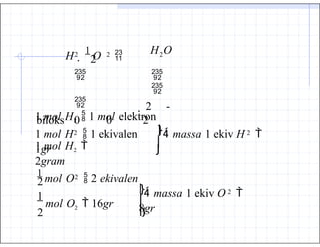 H², ½O 2 23 11 H₂O
235 92 235 92
235 92
235 92 2 -
biloks 0 0 2
1 mol H₂ 5 8 1 mol elektron
1 mol H² 5 8 1 ekivalen ¼ massa 1 ekiv H 2 †
1gr
1 mol H₂ †
2gram
½ mol O² 5 8 2 ekivalen
¼ massa 1 ekiv O 2 †
½ mol O₂ † 16gr 8gr